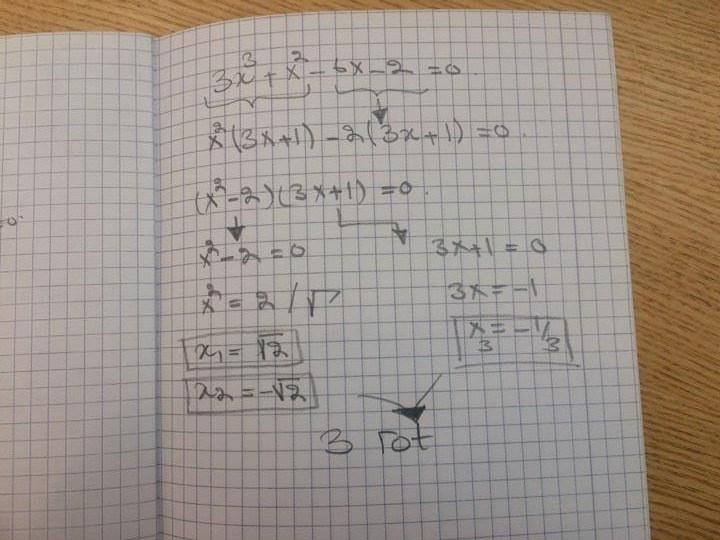 3x³ + x² - 6x - 2 = 0.
x²(3x+1) - 2(3x+1) = 0.
(x²-2)(3x+1) = 0.
x²-2 = 0
3x+1 = 0
x² = 2 / √
3x = -1
x₁ = √2
x₃ = -1/3
x2 = -√2
3 rot
=0.